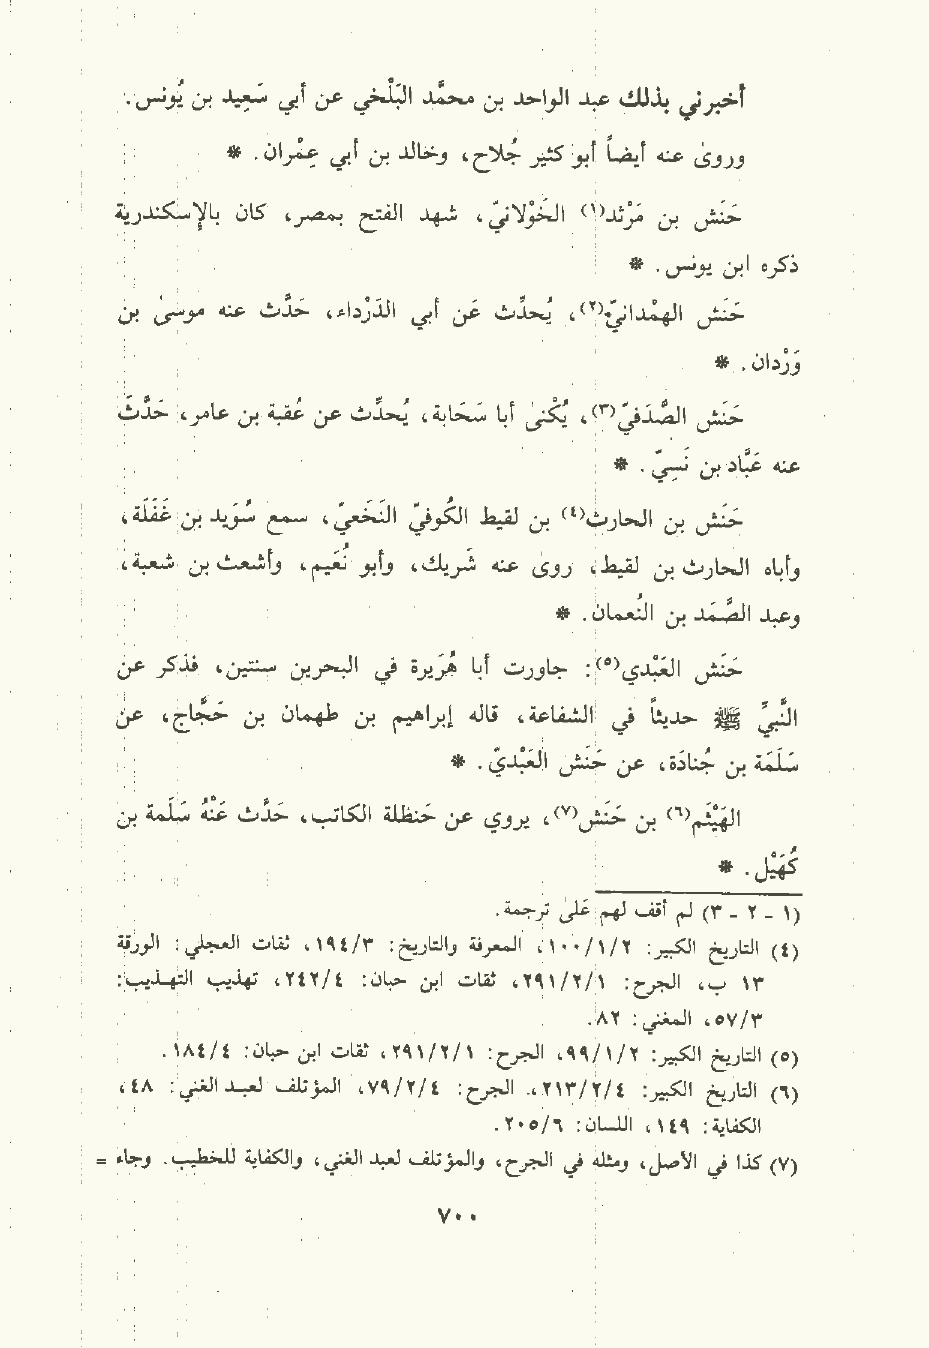 أخبرني بذلك عبد الواحد بن محمَّد البَلْخي عن أبي سَعِيد بن يُونس.
وروىٰ عنه أيضاً أبو كثير جُلاح، وخالد بن أبي عِمْران. *
حَنَش بن مَرْثد(١) الخَوْلانيّ، شهد الفتح بمصر، كان بالإسكندرية
ذكره ابن يونس. *
حَنَش الهمْدانيّ(٢)، يُحدِّث عَن أبي الدَرْداء، حَدَّث عنه موسىٰ بن
وَرْدان. *
حَنَش الصَّدَفيّ(٣)، يُكْنىٰ أبا سَحَابة، يُحدِّث عن عُقبة بن عامر، حَدَّثَ
عنه عَبَّاد بن نَسِيّ. *
حَنَش بن الحارث(٤) بن لقيط الكُوفيّ النَخَعيّ، سمع سُوَيد بن غَفَلَة،
وأباه الحارث بن لقيط، روىٰ عنه شَريك، وأبو نُعَيم، وأشعث بن شعبة،
وعبد الصَّمَد بن النُعمان. *
حَنَش العَبْدي(٥): جاورت أبا هُرَيرة في البحرين سنتين، فذكر عن
النَّبيِّ ﷺ حديثاً في الشفاعة، قاله إبراهيم بن طهمان بن حَجَّاج، عن
سَلَمَة بن جُنادَة، عن حَنَش العَبْديّ. *
الهَيْثَم(٦) بن حَنَش(٧)، يروي عن حَنظلة الكاتب، حَدَّث عَنْهُ سَلَمة بن
كُهَيْل. *
(١ - ٢ - ٣) لم أقف لهم عَلىٰ ترجمة.
(٤) التاريخ الكبير: ١٠٠/١/٢، المعرفة والتاريخ: ١٩٤/٣، ثقات العجلي: الورقة
١٣ ب، الجرح: ٢٩١/٢/١، ثقات ابن حبان: ٢٤٢/٤، تهذيب التهـذيب:
٥٧/٣، المغني: ٨٢.
(٥) التاريخ الكبير: ٩٩/١/٢، الجرح: ٢٩١/٢/١، ثقات ابن حبان: ١٨٤/٤.
(٦) التاريخ الكبير: ٢١٣/٢/٤، الجرح: ٧٩/٢/٤، المؤتلف لعبـد الغني: ٤٨،
الكفاية: ١٤٩، اللسان: ٢٠٥/٦.
(٧) كذا في الأصل، ومثله في الجرح، والمؤتلف لعبد الغني، والكفاية للخطيب. وجاء =
٧٠٠